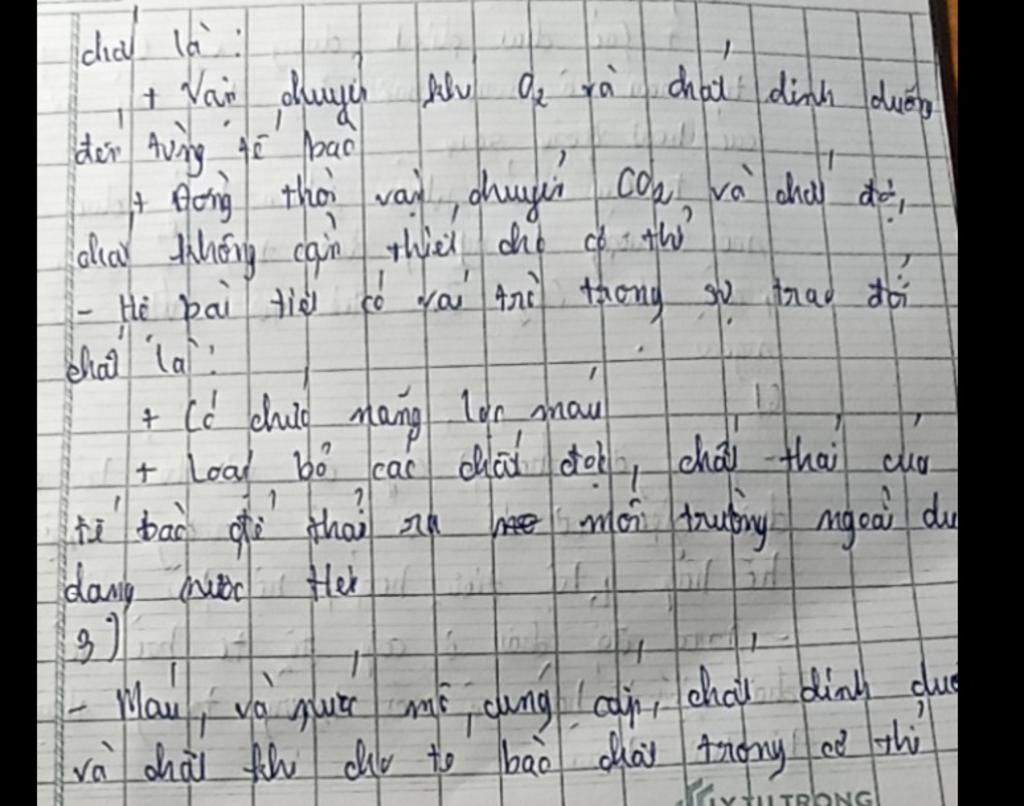 chất là:
+ Vận chuyển khí O2 và chất dinh dưỡng
đến từng tế bào
+ Đồng thời vận chuyển CO2 và chất độc,
chất không cần thiết cho cơ thể
- Hệ bài tiết có vai trò trong sự trao đổi
chất là:
+ Có chức năng lọc máu
+ Loại bỏ các chất độc, chất thải của
tế bào để thải ra môi trường ngoài dư
dạng nước tiểu
3)
- Máu và nước mô cung cấp chất dinh dưỡ
và chất khí cho tế bào trong cơ thể
LÝ TỰ TRỌNG